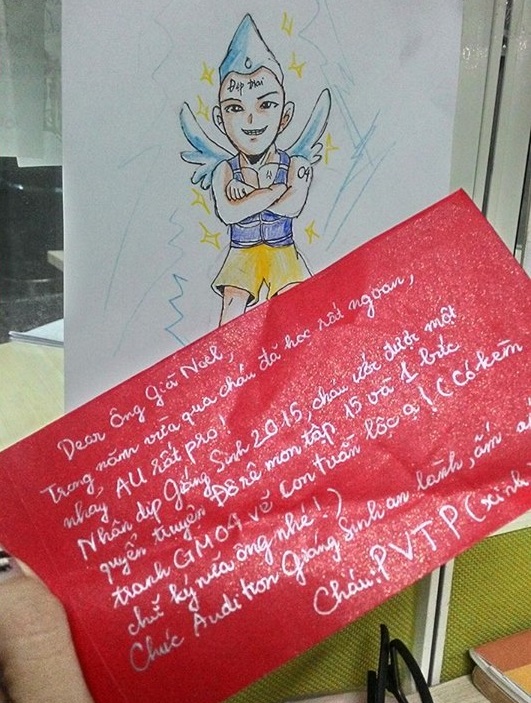 Đẹp trai
04
Dear Ông Già Noel,
Trong năm vừa qua cháu đã học rất ngoan,
nhảy AU rất pro!
Nhân dịp Giáng Sinh 2015, cháu ước được một
quyển truyện Đô rê mon tập 15 và 1 bức
tranh GM04 vẽ con tuần lộc ạ! (Có kèm
chữ ký nữa ông nhé!)
Chúc Audition Giáng Sinh an lành, ấm
Cháu: PVTP (xinh